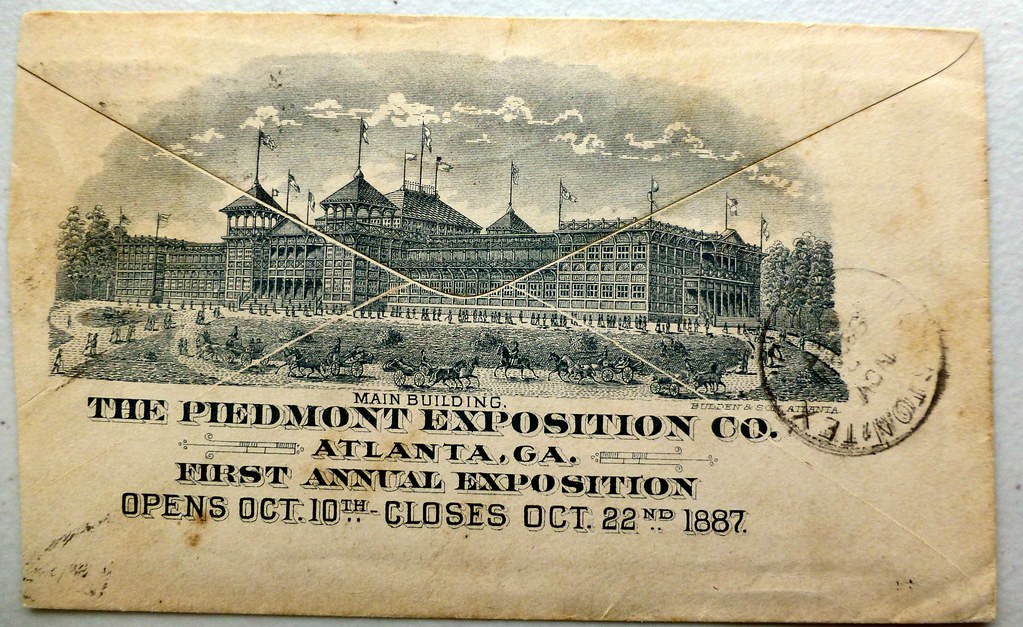 MAIN BUILDING.
THE PIEDMONT EXPOSITION CO.
ATLANTA, GA.
FIRST ANNUAL EXPOSITION
OPENS OCT. 10TH - CLOSES OCT. 22ND 1887.
ATLANTA
NOV